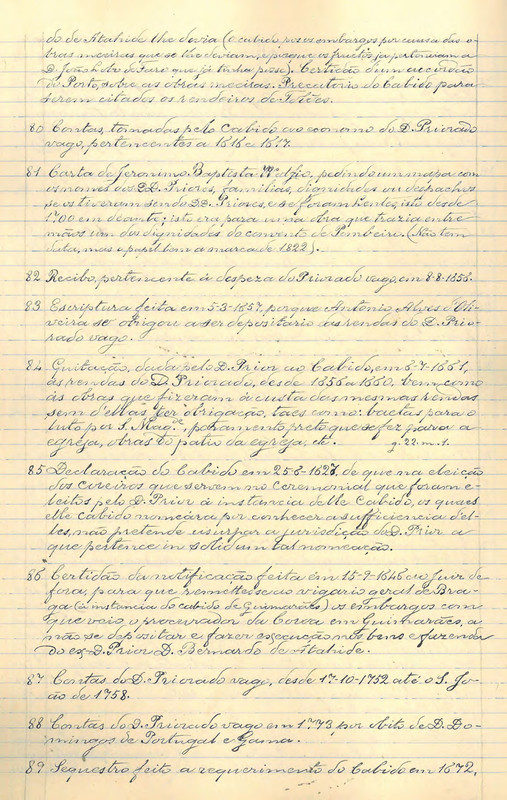 do de Atahide lhe devia (o cabido poz os embargos por causa das o-
bras meúras que se lhe deviam, e porque os fructos ja pertenciam a
D. João Lobo de Faro que já tinha posse). Certidão d'um accordão
do Porto, sobre as obras meúdas. Precatorio do Cabido para
serem citados os rendeiros de Telões.
80 Contas, tomadas pelo Cabido ao economo do D. Priorado
vago, pertencentes a 1616 e 1617.
81 Carta de Jeronimo Baptista pedindo um mapa com
os nomes dos DD. Priores, familias, dignidades ou despachos
se os tiveram sendo DD. Priores, e se foram Lentes, isto desde
1700 em deante; isto era para uma obra que trazia entre
mãos um dos dignidades do convento de Pombeiro. (Não tem
data, mas o papel tem a marca de 1822).
82 Recibo, pertencente á despeza do Priorado vago, em 8-8-1656.
83 Escriptura feita em 5-3-1657, porque Antonio Alves d'Oli-
veira se obrigou a ser depositario ás rendas do D. Prio-
rado vago.
84 Quitação, dada pelo D. Prior ao Cabido, em 6-7-1661,
ás rendas do D. Priorado, desde 1656 a 1660, bem como
ás obras que fizeram á custa das mesmas rendas
sem d'ellas ter obrigação, taes como: baetas para o
luto por S. Mag.e, paramento preto que se fez para a
egreja, obras do pateo da egreja, etc. g. 22. m. 1.
85 Declaração do Cabido em 25-6-1627, de que na eleição
dos coreiros que servem no ceremonial que foram e-
leitos pelo D. Prior á instancia delle Cabido, os quaes
elle cabido nomeára por conhecer a sufficiencia del-
les, não pretende usurpar a jurisdição do D. Prior a
que pertence in solidum tal nomeação.
86 Certidão da notificação feita em 15-9-1646 ao Juiz de
fora, para que remettesse ao vigario geral de Bra-
ga (á instancia do cabido de Guimarães) os embargos com
que veio, o procurador da Coroa em Guimarães, a
não se depositar e fazer execução nos bens e fazenda
do ex-D. Prior D. Bernardo de Atahide.
87 Contas do D. Priorado vago, desde 17-10-1752 até o S. Jo-
ão de 1758.
88 Contas do D. Priorado vago em 1773, por obito de D. Do-
mingos de Portugal e Gama.
89 Sequestro feito a requerimento do Cabido em 1672,